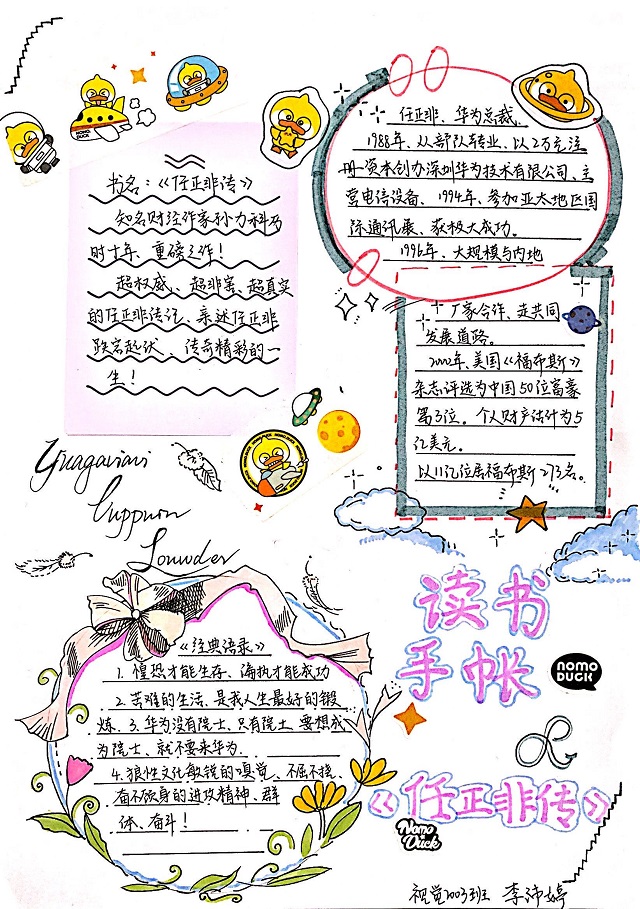 书名：《任正非传》
知名财经作家孙力科历
时十年、重磅之作！
超权威、超非套、超真实
的任正非传记、亲述任正非
跌宕起伏、传奇精彩的一
生！
NOMO DUCK
任正非、华为总裁、
1988年、从部队转业、以2万元注
册资本创办深圳华为技术有限公司、主
营电信设备、1994年、参加亚太地区国
际通讯展、获极大成功。
1996年、大规模与内地
厂家合作、走共同
发展道路。
2000年、美国《福布斯》
杂志评选为中国50位富豪
第3位。个人财产估计为5
亿美元。
以11亿位居福布斯273名。
Louvder
《经典语录》
1. 惶恐才能生存、偏执才能成功
2. 苦难的生活、是我人生最好的锻
炼. 3. 华为没有院士、只有院土. 要想成
为院士、就不要来华为.
4. 狼性文化敏锐的嗅觉、不屈不挠、
奋不顾身的进攻精神、群
体、奋斗！
读书
手帐
NOMO
DUCK
《任正非传》
Nomo
Duck
视觉2003班 李沛婷